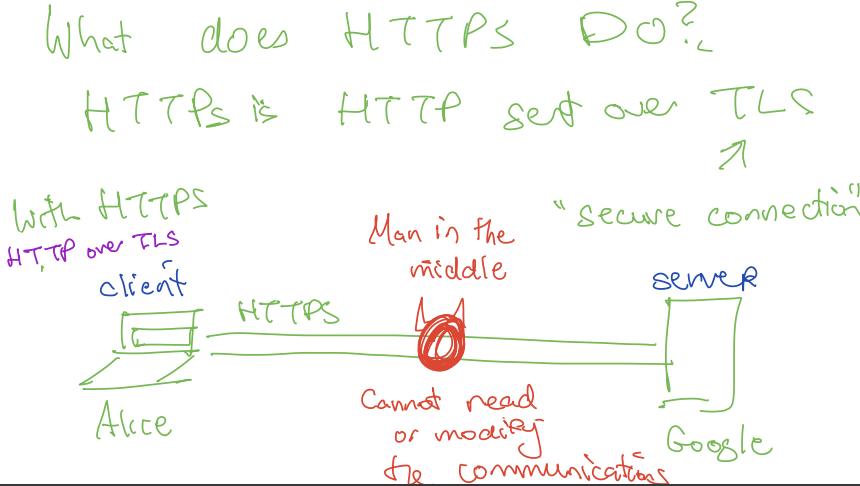 What does HTTPS DO?
HTTPs is HTTP sent over TLS
"secure connection"
With HTTPS
HTTP over TLS
client
HTTPS
Man in the
middle
server
Alice
Cannot read
or modify
the communications
Google